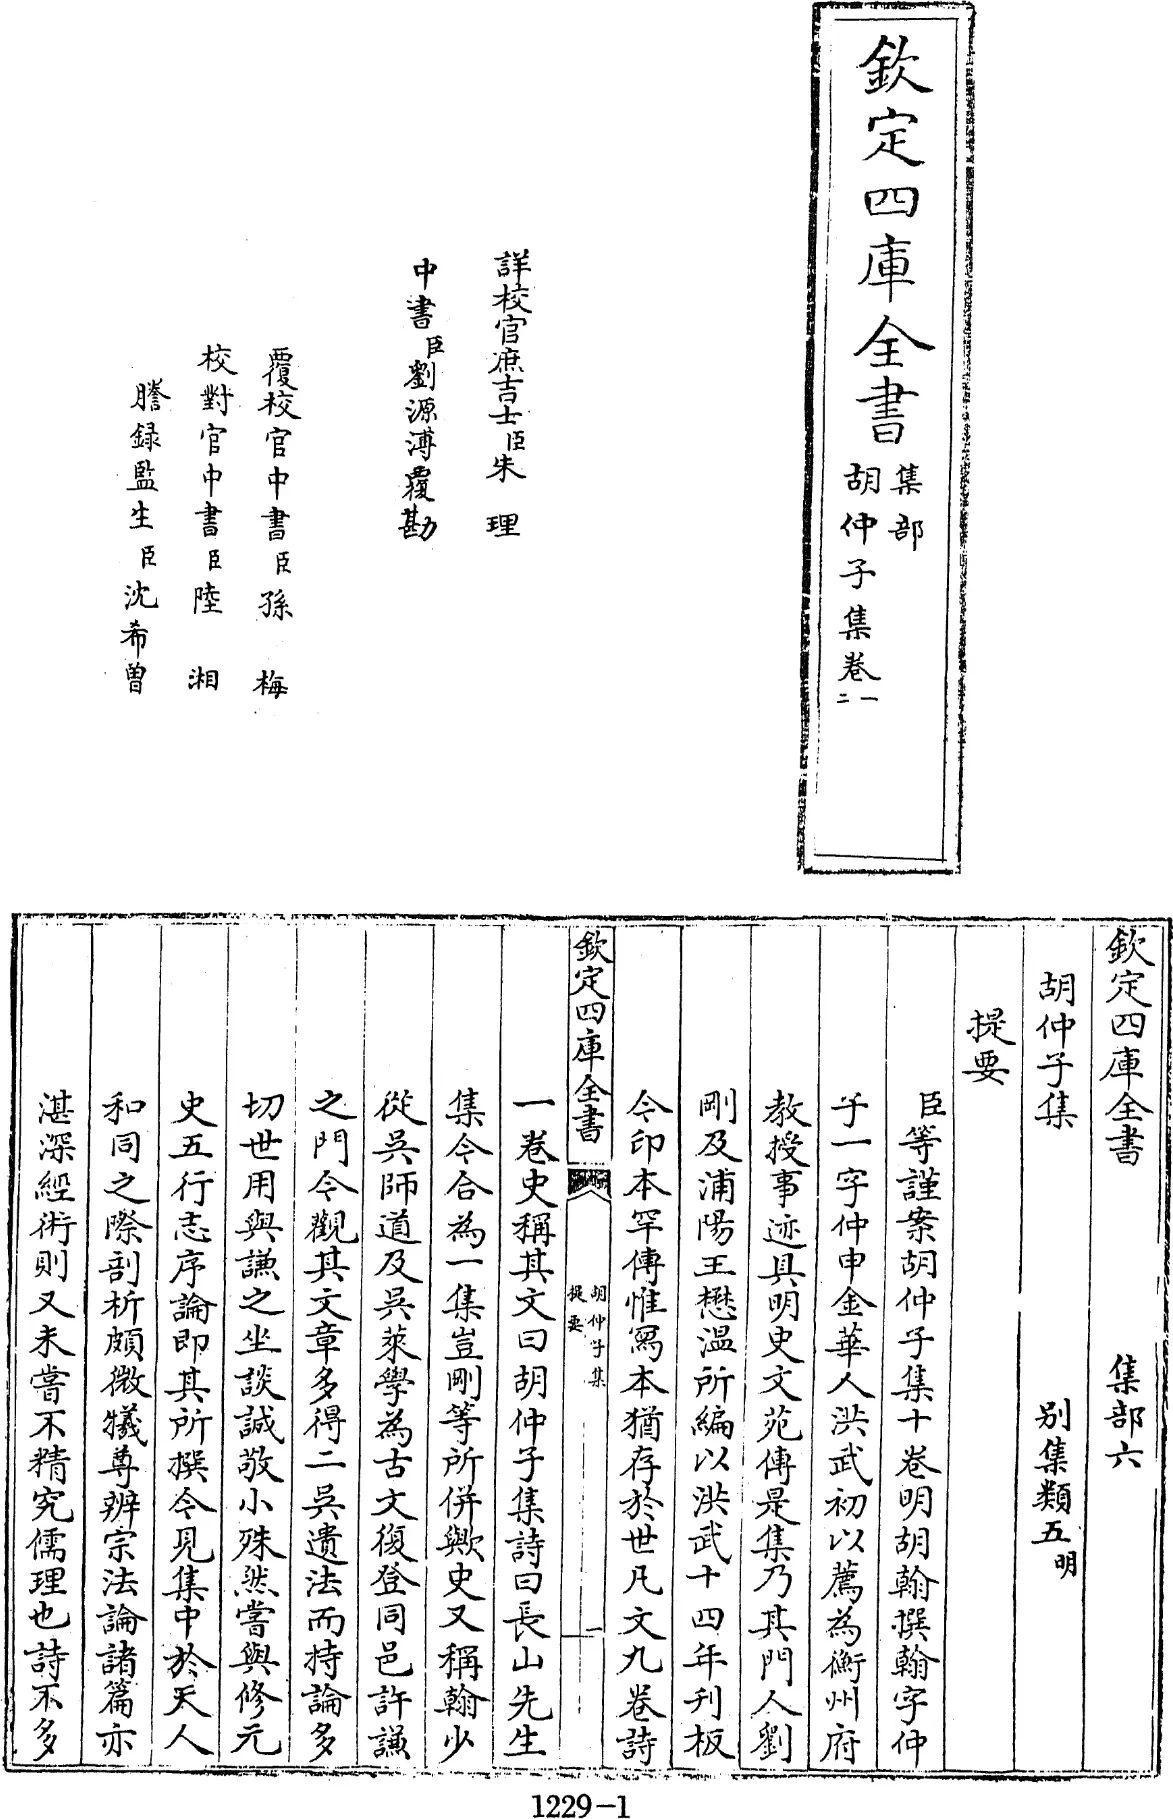 欽定四庫全書
集部
胡仲子集卷一
二
詳校官庶吉士臣朱理
中書臣劉源溥覆勘
覆校官中書臣孫梅
校對官中書臣陸湘
謄錄監生臣沈希曾
欽定四庫全書 集部六
胡仲子集 别集類五明
提要
臣等謹案胡仲子集十卷明胡翰撰翰字仲
子一字仲申金華人洪武初以薦為衢州府
教授事迹具明史文苑傳是集乃其門人劉
剛及浦陽王懋温所編以洪武十四年刋板
今印本罕傳惟寫本猶存於世凡文九卷詩
欽定四庫全書
胡仲子集
提要
一
一卷史稱其文曰胡仲子集詩曰長山先生
集今合為一集豈剛等所併歟史又稱翰少
從吳師道及吳萊學為古文復登同邑許謙
之門今觀其文章多得二吳遺法而持論多
切世用與謙之坐談誠敬小殊然嘗與修元
史五行志序論即其所撰今見集中於天人
和同之際剖析頗微犧尊辨宗法論諸篇亦
湛深經術則又未嘗不精究儒理也詩不多
1229-1